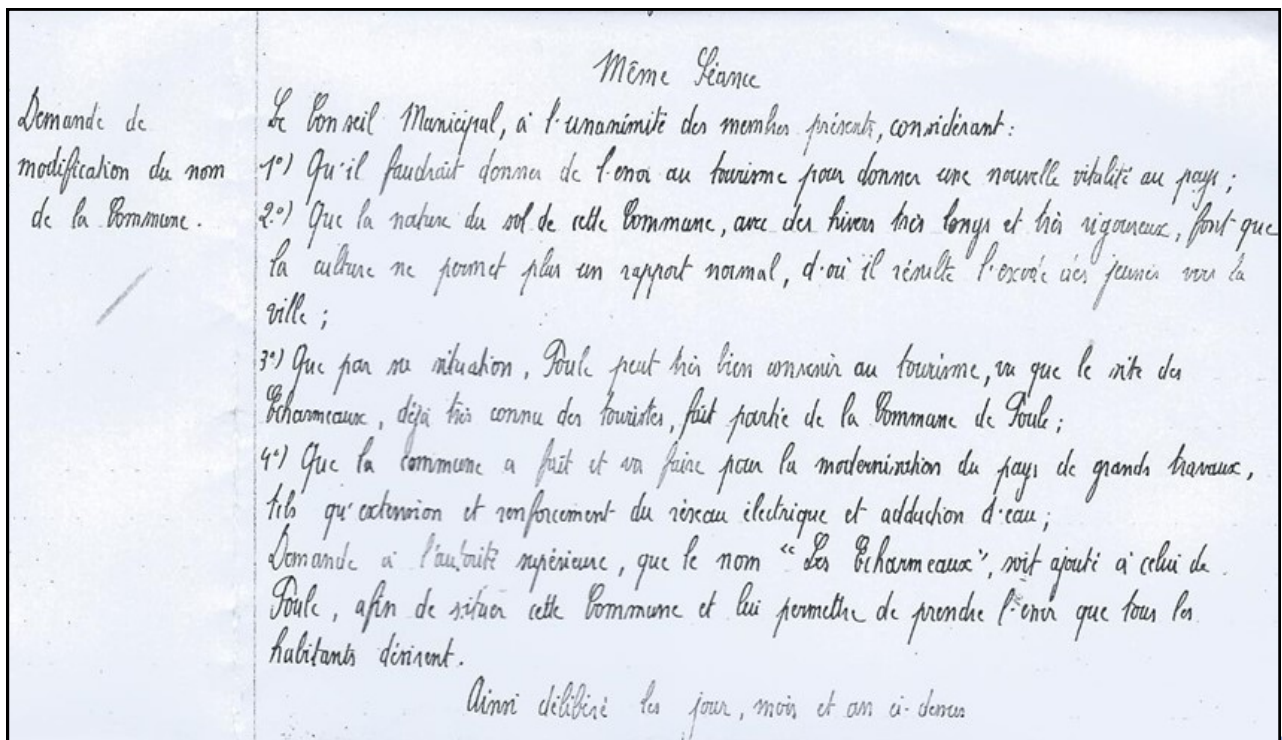 Même Séance
Demande de
modification du nom
de la Commune.
Le Conseil Municipal, à l'unanimité des membres présents, considérant :
1°) Qu'il faudrait donner de l'enor au tourisme pour donner une nouvelle vitalité au pays ;
2°) Que la nature du sol de cette Commune, avec des hivers très longs et très rigoureux, font que
la culture ne permet plus un rapport normal, d'où il résulte l'exode des jeunes vers la
ville ;
3°) Que par sa situation, Poule peut très bien convenir au tourisme, vu que le site des
Echarmeaux, déjà très connu des touristes, fait partie de la Commune de Poule ;
4°) Que la commune a fait et va faire pour la modernisation du pays de grands travaux,
tels qu'extension et renforcement du réseau électrique et adduction d'eau ;
Demande à l'autorité supérieure, que le nom "Les Echarmeaux", soit ajouté à celui de
Poule, afin de situer cette Commune et lui permettre de prendre l'enor que tous les
habitants désirent.
Ainsi délibéré les jour, mois et an ci-dessus